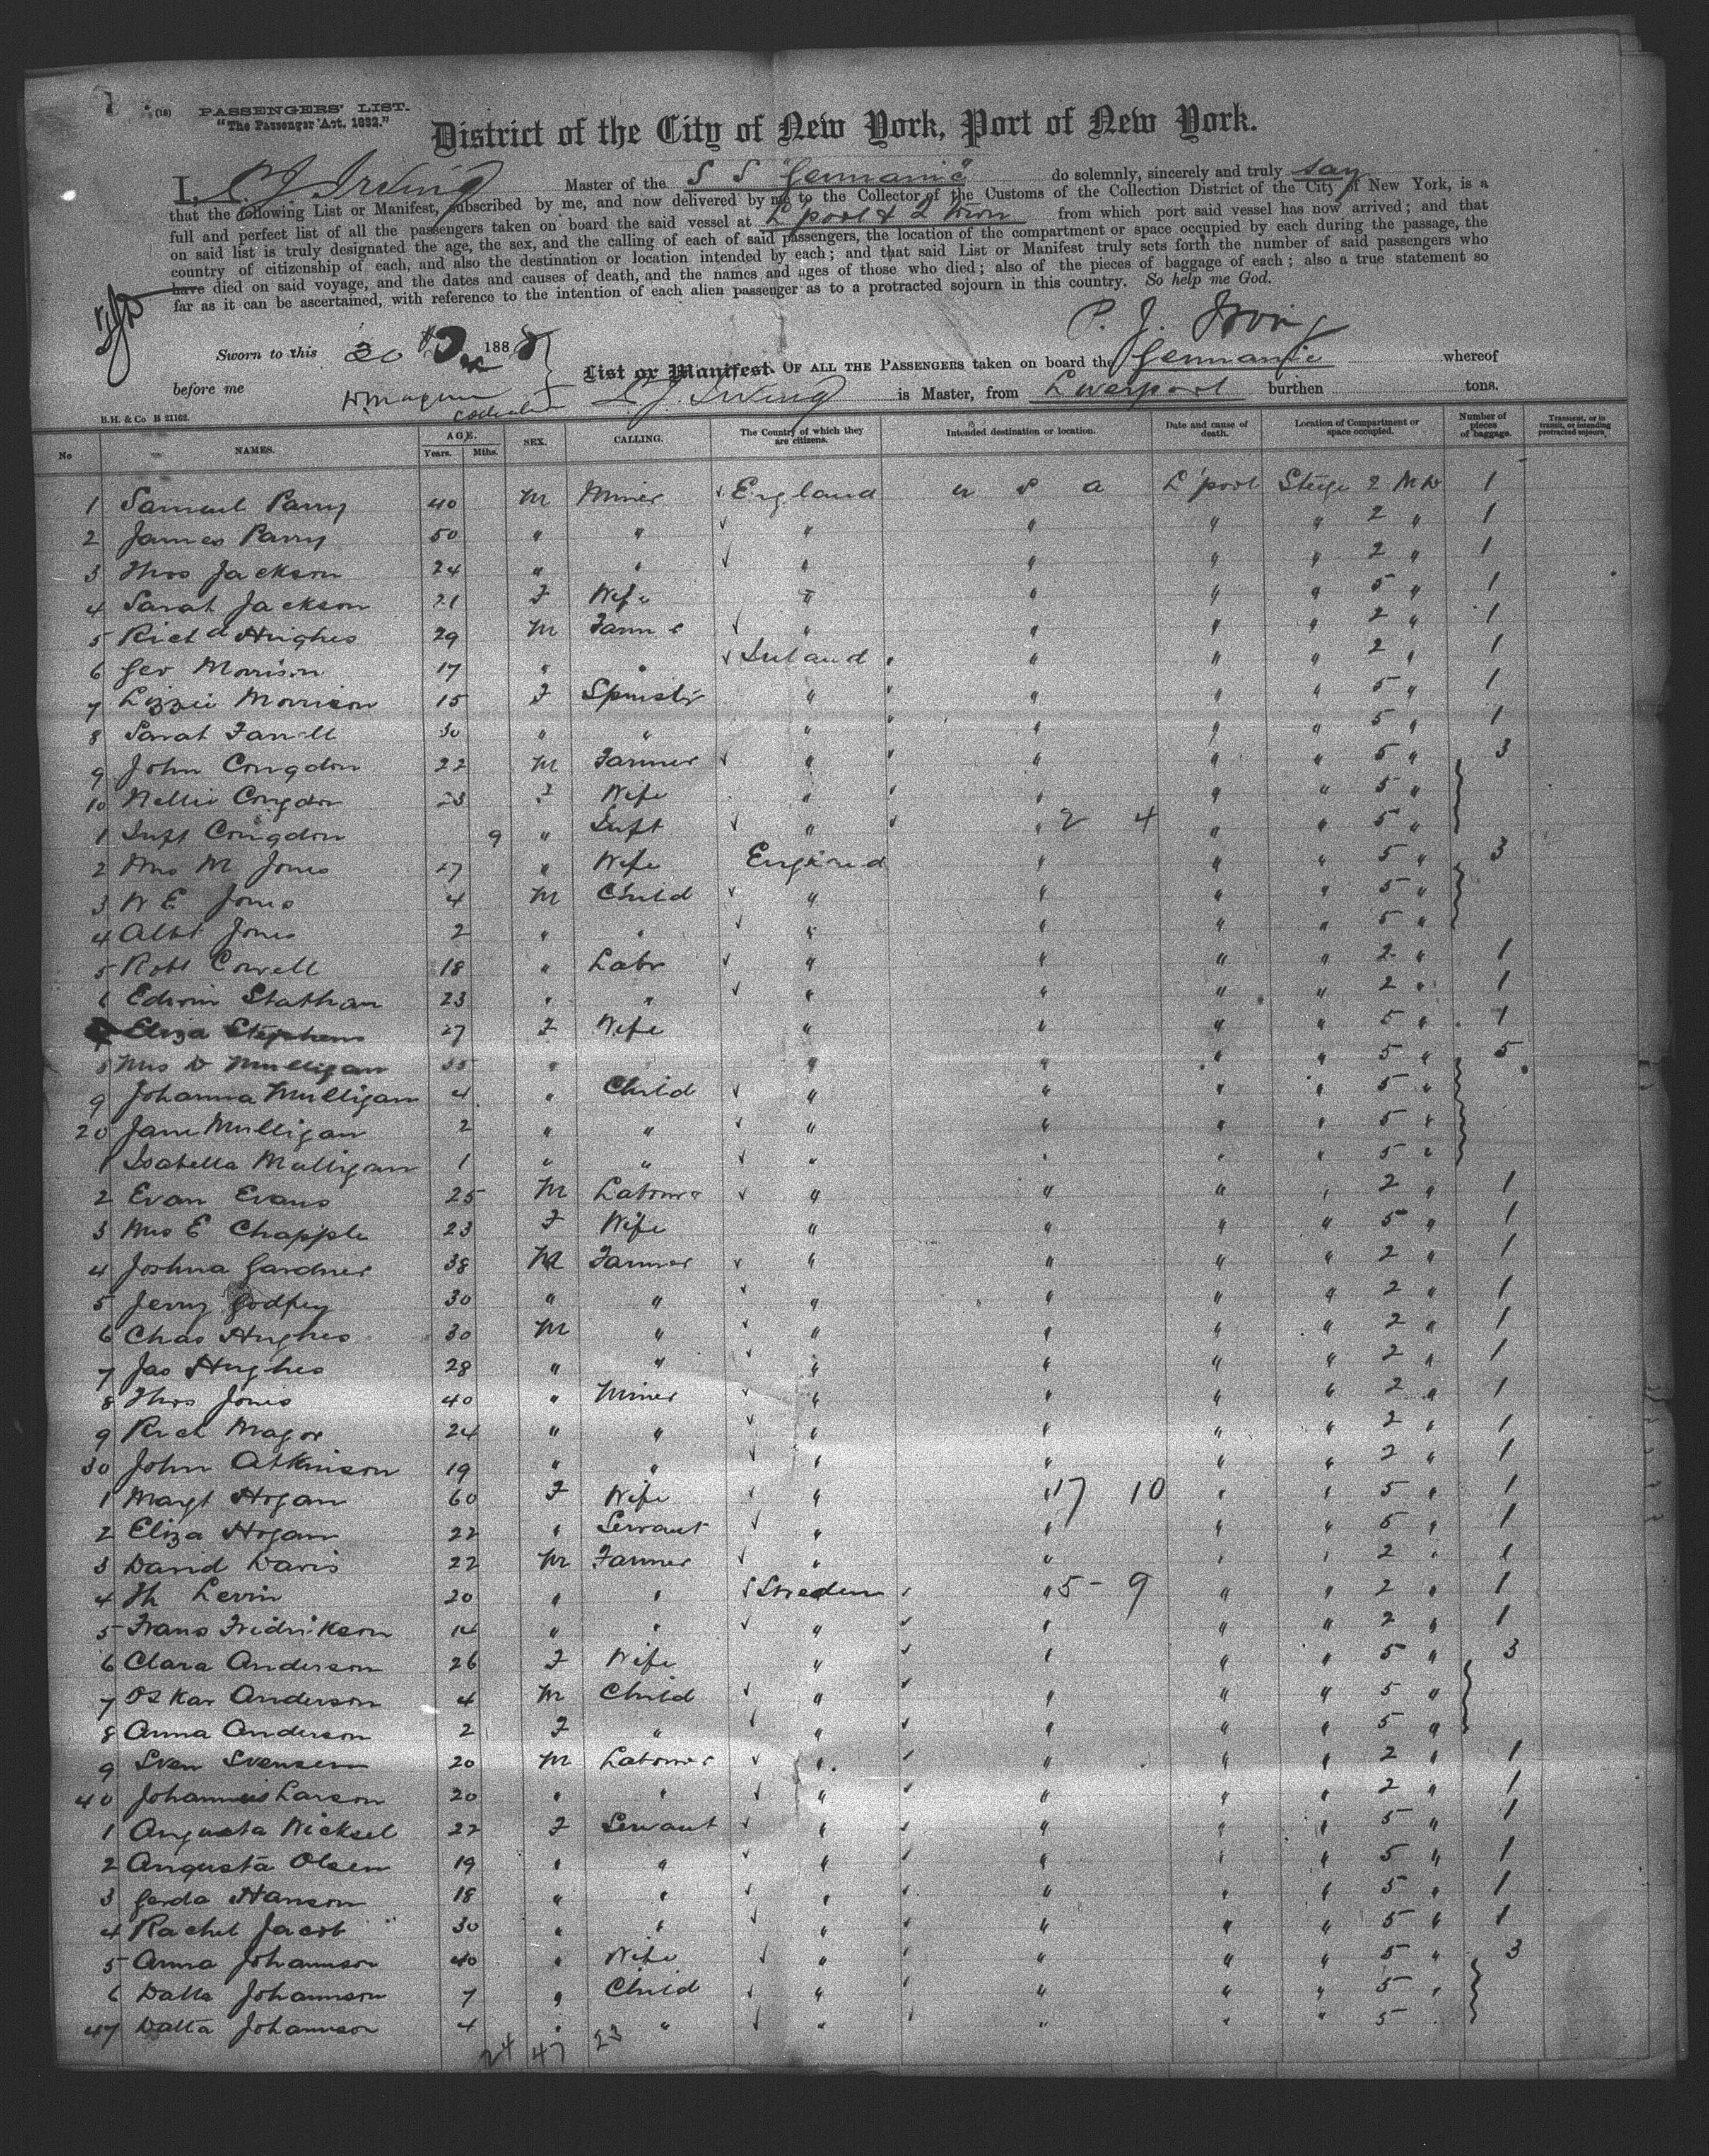 1 (18) PASSENGERS' LIST.
"The Passenger Act. 1882."
District of the City of New York, Port of New York.
I, P. J. Irving Master of the S S "Germanic" do solemnly, sincerely and truly say
that the following List or Manifest, subscribed by me, and now delivered by me to the Collector of the Customs of the Collection District of the City of New York, is a
full and perfect list of all the passengers taken on board the said vessel at L'pool & Q'town from which port said vessel has now arrived; and that
on said list is truly designated the age, the sex, and the calling of each of said passengers, the location of the compartment or space occupied by each during the passage, the
country of citizenship of each, and also the destination or location intended by each; and that said List or Manifest truly sets forth the number of said passengers who
have died on said voyage, and the dates and causes of death, and the names and ages of those who died; also of the pieces of baggage of each; also a true statement so
far as it can be ascertained, with reference to the intention of each alien passenger as to a protracted sojourn in this country. So help me God.
P. J. Irving
Sworn to this 1888
List or Manifest. OF ALL THE PASSENGERS taken on board the Germanic whereof
before me P J Irving is Master, from Liverpool burthen tons.
B.H. & Co B 21162.
No NAMES. AGE. Years. Mths. SEX. CALLING. The Country of which they are citizens. Intended destination or location. Date and cause of death. Location of Compartment or space occupied. Number of pieces of baggage. Transient, or in transit, or intending protracted sojourn.
1 Samuel Parry 40 M Miner England U S A L'pool Stege 2 1
2 James Parry 50 " " " " " " 2 " 1
3 Thos Jackson 24 " " " " " " 2 " 1
4 Sarah Jackson 21 F Wife " " " " 5 " 1
5 Richd Hughes 29 M Farmer " " " " 2 " 1
6 Geo Morrison 17 " " Ireland " " " 2 " 1
7 Lizzie Morrison 15 F Spinster " " " " 5 " 1
8 Sarah Farrell 30 " " " " " " 5 " 1
9 John Congdon 22 M Farmer " " " " 5 " 3
10 Nellie Congdon 23 F Wife " " " " 5 "
1 Inft Congdon 9 " Inft " " 2 4 " " 5 "
2 Mrs M Jones 27 " Wife England " " " 5 " 3
3 W E Jones 4 M Child " " " " 5 "
4 Albt Jones 2 " " " " " " 5 "
5 Robt Cowell 18 " Labr " " " " 2 " 1
6 Edwin Statham 23 " " " " " " 2 " 1
7 Eliza Stephens 27 F Wife " " " " 5 " 1
8 Mrs D Mulligan 35 " " " " " 5 " 5
9 Johanna Mulligan 4 " Child " " " " 5 "
20 Jane Mulligan 2 " " " " " " 5 "
1 Isabella Mulligan 1 " " " " " " 5 "
2 Evan Evans 25 M Labourer " " " " 2 " 1
3 Mrs E Chapple 23 F Wife " " " " 5 " 1
4 Joshua Gardner 38 M Farmer " " " " 2 " 1
5 Jerry Godfrey 30 " " " " " " 2 " 1
6 Chas Hughes 30 M " " " " " 2 " 1
7 Jas Hughes 28 " " " " " " 2 " 1
8 Thos Jones 40 " Miner " " " " 2 " 1
9 Rich Magor 24 " " " " " " 2 " 1
30 John Atkinson 19 " " " " " " 2 " 1
1 Margt Hogan 60 F Wife " " 17 10 " " 5 " 1
2 Eliza Hogan 22 " Servant " " " " 5 " 1
3 David Davis 22 M Farmer " " " " 2 " 1
4 Th Levin 20 " " Sweden " 5 - 9 " " 2 " 1
5 Frans Fridrikson 14 " " " " " " 2 " 1
6 Clara Anderson 26 F Wife " " " " 5 " 3
7 Oskar Anderson 4 M Child " " " " 5 "
8 Anna Anderson 2 F " " " " " 5 "
9 Sven Svensen 20 M Labourer " " " " 2 " 1
40 Johannes Larson 20 " " " " " " 2 " 1
1 Augusta Nicksel 22 F Servant " " " " 5 " 1
2 Augusta Olsen 19 " " " " " " 5 " 1
3 Gerda Hanson 18 " " " " " " 5 " 1
4 Rachel Jacob 30 " " " " " " 5 " 1
5 Anna Johannson 40 " Wife " " " " 5 " 3
6 Dalla Johannson 7 " Child " " " " 5 "
47 Dalta Johannson 4 " " " " " " 5 "
24 47 23